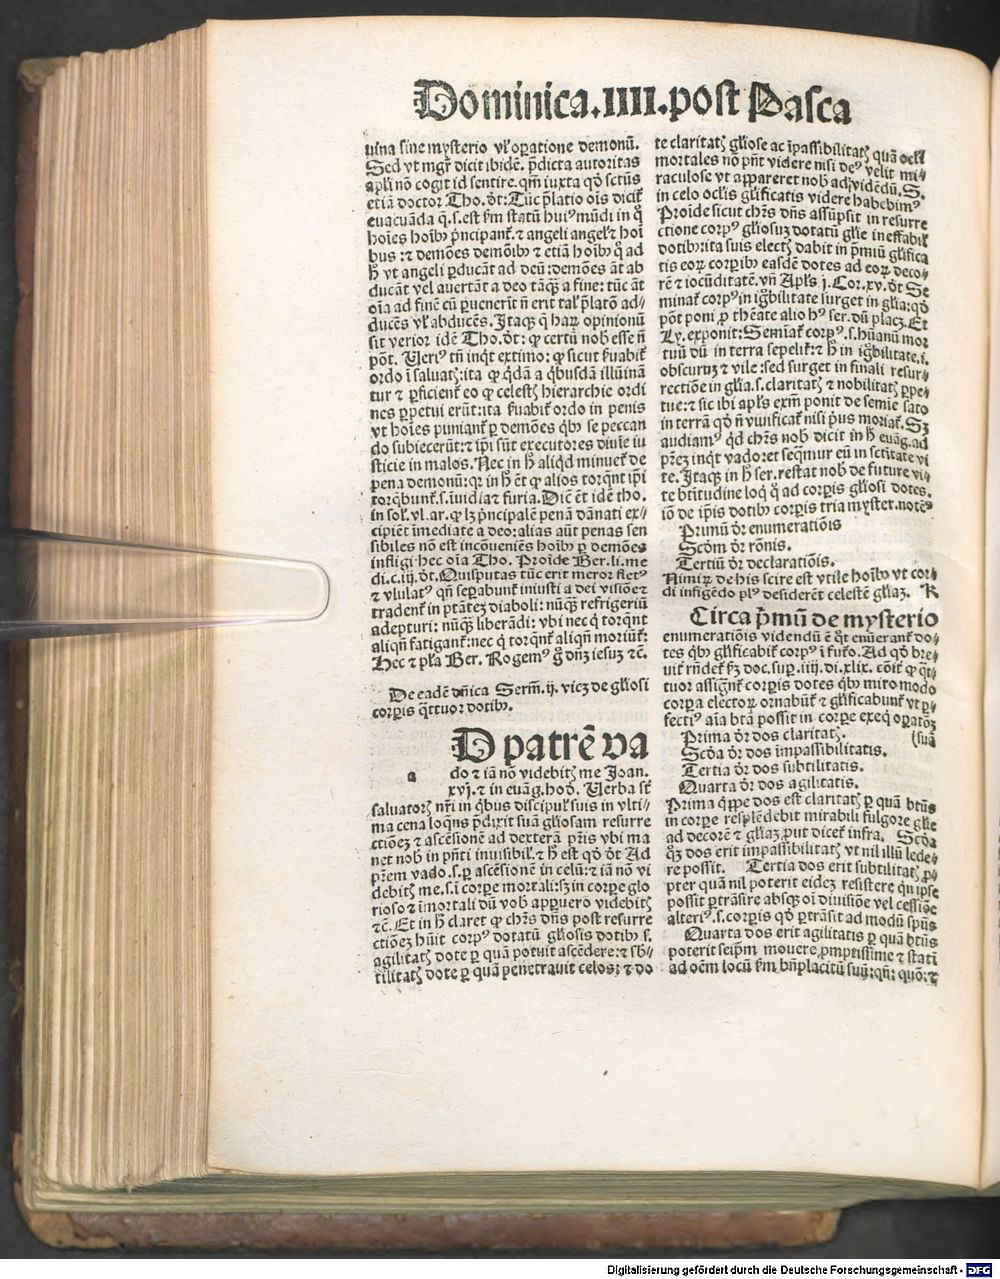 Dominica.IIII.post Pasca
uina sine mysterio vł oꝑatione demonū.
Sed vt mgr̄ dicit ibidē. p̄dicta autoritas
apl̄i nō cogit id sentire. qm̄ iuxta qđ sctūs
etiā doctor Tho. ōt: Tūc p̄latio oīs dicit̄
euacuāda q̄.s.est s̄m statū huiꝰ mūdi in q̊
hoīes hoībꝫ p̄ncipant̄. ⁊ angeli angel̄ ⁊ hoī
bus : ⁊ demōes demōibꝫ ⁊ etiā hoībꝫ q̊ ad
h̄ vt angeli ꝑducāt ad deū: demōes āt ab
ducāt vel auertāt a deo tāqꝫ a fine: tūc āt
oīa ad finē cū ꝑuenerīt n̄ erit tal̄ p̄latō ad⸗
ducēs vł abducēs. Itaqꝫ q̄ haꝝ opinionū
sit verior idē Tho. ōt: ꝙ certū nob̄ esse n̄
pōt. Ueriꝰ tn̄ inqt̄ extimo: ꝙ sicut ẜuabit̄
ordo ī saluatꝭ: ita ꝙ q̄dā a q̄busdā illūinā
tur ⁊ ꝑficient̄ eo ꝙ celestꝭ hierarchie ordi
nes ꝑpetui erūt: ita ẜuabit̄ ordo in penis
vt hoīes puniant̄ ꝑ demōes q̄bꝫ se peccan
do subiecerūt: ⁊ ip̄i sūt executores diuīe iu
sticie in malos. Nec in h̄ aliq̄d minuet̄ de
pena demonū: qꝛ in h̄ ēt ꝙ alios torq̄nt ip̄i
torq̄bunt̄. s. īuidia ⁊ furia. Diē ēt idē tho.
in sol̄. vl. ar. ꝙ lꝫ p̄ncipalē penā dānati ex⸗
cipiēt īmediate a deo: alias aūt penas sen
sibiles nō est incōueniēs hoībꝫ ꝑ demōes
infligi⸝ hec oīa Tho. Proīde Ber. li. me
di. c. iij. ōt. Quisputas tūc erit meror fletꝰ
⁊ vlulatꝰ qn̄ seꝑabunt̄ iniusti a dei visiōe ⁊
tradent̄ in ptātez diaboli: nūqꝫ refrigeriū
adepturi: nūqꝫ liberādi: vbi nec q̄ torqūt
aliqn̄ fatigant̄: nec q̄ torqūt̄ aliqn̄ moriūt̄:
Hec ⁊ pl̄a Ber. Rogemꝰ g̊ dn̄ꝫ iesuꝫ ⁊c̄.
De eadē dn̄ica Serm̄. ij. vicꝫ de gl̄iosi
corꝑis q̄ttuor dotibꝫ.
D patrē va
a
do ⁊ iā nō videbitꝭ me Joan.
xvj. ⁊ in euāg. hod̄. Uerba st̄
saluatorꝭ nr̄i in q̄bus discipul̄ suis in vlti⸗
ma cena loqn̄s p̄dixit suā gl̄iosam resurre
ctiōeꝫ ⁊ ascēsionē ad dexterā p̄ris vbi ma
net nob̄ in pn̄ti inuisibil̄. ⁊ h̄ est qđ ōt Ad
prēm vado. s. ꝑ ascēsionē in celū: ⁊ iā nō vi
debitꝭ me. s. ī corꝑe mortali: sꝫ in corꝑe glo
rioso ⁊ īmortali dū vob̄ apꝑuero videbitꝭ
⁊c̄. Et in h̄ claret ꝙ chr̄s dn̄s post resurre
ctiōeꝫ hūit corpꝰ dotatū gl̄iosis dotibꝫ s.
agilitatꝭ dote ꝑ quā potuit ascēdere: ⁊ sb̄⸗
tilitatꝭ dote ꝑ quā penetrauit celos: ⁊ do
te claritatꝭ gl̄iose ac īpassibilitatꝭ quā ocl̄i
mortales nō pn̄t videre nisi deꝰ velit mi⸗
raculose vt appareret nob̄ ad videdū. S.
in celo ocl̄is gl̄ificatis videre habebimꝰ
Proīde sicut chr̄s dn̄s assūpsit in resurre
ctione corpꝰ gl̄iosuꝫ dotatū gl̄ie ineffabil̄
dotibꝫ: ita suis electꝭ dabit in p̄miū gl̄ifica
tis eoꝝ corꝑibꝫ easdē dotes ad eoꝝ deco⸗
rē ⁊ iocūditatē. vn̄ Apl̄s j. Cor. xv. ōt Se
minat̄ corpꝰ in igb̄ilitate surget in gl̄ia: qđ
pōt poni ꝓ theāte alio hꝰ ser. dū placꝫ. Et
Ly. exponit: Semīat̄ corpꝰ. s. hūanū mor
tuū dū in terra sepelit̄: ⁊ h̄ in igb̄ilitate. i.
obscuruꝫ ⁊ vile: sed surget in finali resur⸗
rectiōe in gl̄ia. s. claritatꝭ ⁊ nobilitatꝭ ꝑpe⸗
tue: ⁊ sic ibi apl̄s exm̄ ponit de semīe sato
in terrā qđ n̄ viuificat̄ nisi p̄us moriat̄. Sꝫ
audiamꝰ q̄d chr̄s nob̄ dicit in h̄ euāg. ad
pr̄eꝫ inqt̄ vado: et seq̄mur eū in sctītate vi
te. Itaqꝫ in h̄ ser. restat nob̄ de future vi⸗
te btītudine loq̄ q̊ ad corꝑis gl̄iosi dotes.
iō de ip̄is dotibꝫ corꝑis tria myster. notēꝰ
Primū ōr enumeratiōis
Scōm ōr rōnis.
Tertiū ōr declaratiōis.
Nimiꝝ de his scire est vtile hoībꝫ vt cor⸗
di infigēdo plꝰ desiderēt celestē gl̄iaꝫ. K
Circa p̄mū de mysterio
enumeratiōis videndū ē q̄t enūerant̄ do⸗
tes q̄bꝫ gl̄ificabit̄ corpꝰ ī fut̄o. Ad qđ bre⸗
uit̄ rn̄det̄ ẜꝫ doc. suꝑ. iiij. di. xlix. cōit̄ ꝙ q̄t⸗
tuor assign̄t̄ corꝑis dotes q̄bꝫ miro modo
corpa electoꝝ ornabūt̄ ⁊ gl̄ificabunt̄ vt ꝑ⸗
fectiꝰ aīa btā possit in corꝑe exeq̄ oꝑatōꝫ
Prima ōr dos claritatꝭ. (suā
Scd̄a ōr dos impassibilitatis.
Tertia ōr dos subtilitatis.
Quarta ōr dos agilitatis.
Prima q̄ꝑꝑe dos est claritatꝭ ꝑ quā btūs
in corꝑe resplēdebit mirabili fulgore gl̄ie
ad decorē ⁊ gl̄iaꝫ ꝓut dicet̄ infra. Scd̄a
q̄ꝫ dos erit impassibilitatꝭ vt nil illū lede⸗
re possit. Tertia dos erit subtilitatꝭ ꝓ⸗
pter quā nil poterit eideꝫ resistere qn̄ ipse
possit ꝑtrāsire absqꝫ oī diuisiōe vel cessiōe
alteriꝰ. s. corꝑis qđ ꝑtrāsit ad modū sp̄ūs
Quarta dos erit agilitatis ꝑ quā btūs
poterit seip̄m mouere ꝓmptissime ⁊ statī
ad oēm locū s̄m bn̄placitū suū: qn̄: quō: ⁊
Digitalisierung gefördert durch die Deutsche Forschungsgemeinschaft - DFG